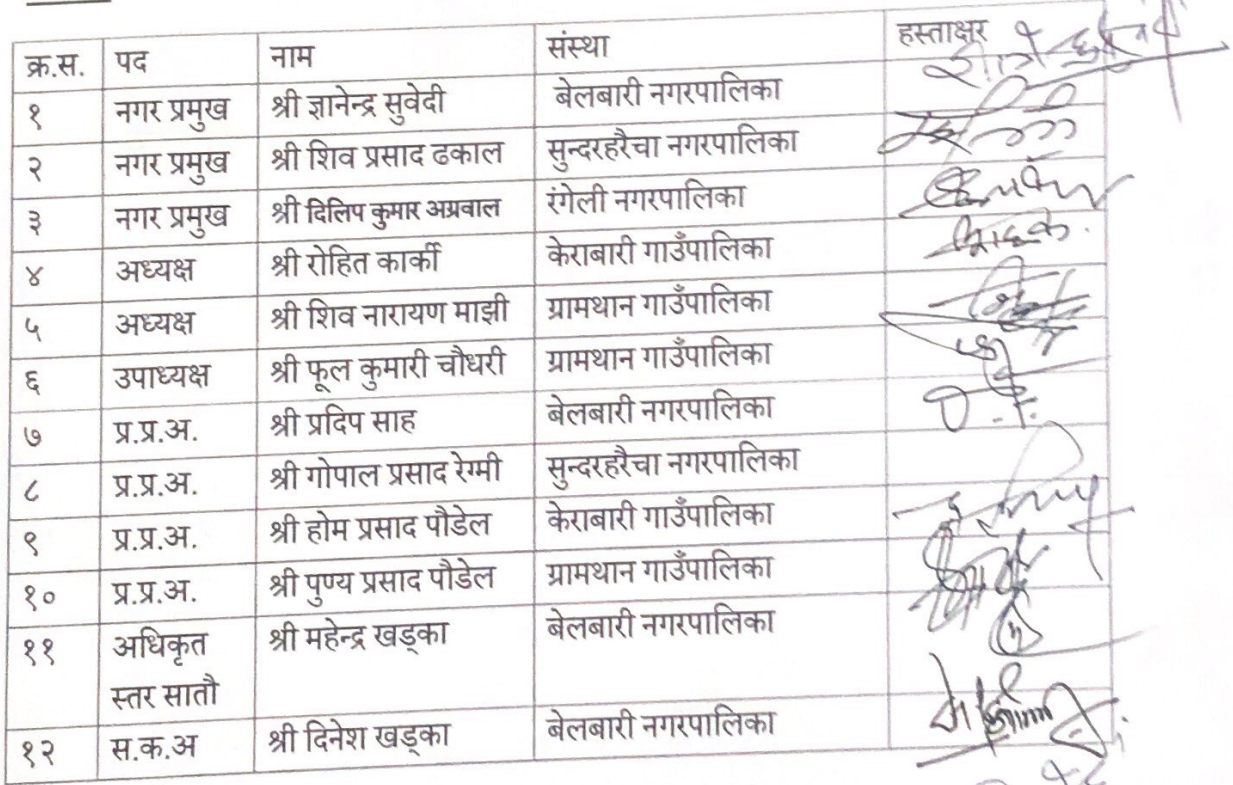 क्र.स. पद नाम संस्था हस्ताक्षर
१ नगर प्रमुख श्री ज्ञानेन्द्र सुवेदी बेलबारी नगरपालिका
२ नगर प्रमुख श्री शिव प्रसाद ढकाल सुन्दरहरैचा नगरपालिका
३ नगर प्रमुख श्री दिलिप कुमार अग्रवाल रंगेली नगरपालिका
४ अध्यक्ष श्री रोहित कार्की केराबारी गाउँपालिका
५ अध्यक्ष श्री शिव नारायण माझी ग्रामथान गाउँपालिका
६ उपाध्यक्ष श्री फूल कुमारी चौधरी ग्रामथान गाउँपालिका
७ प्र.प्र.अ. श्री प्रदिप साह बेलबारी नगरपालिका
८ प्र.प्र.अ. श्री गोपाल प्रसाद रेग्मी सुन्दरहरैचा नगरपालिका
९ प्र.प्र.अ. श्री होम प्रसाद पौडेल केराबारी गाउँपालिका
१० प्र.प्र.अ. श्री पुण्य प्रसाद पौडेल ग्रामथान गाउँपालिका
११ अधिकृत श्री महेन्द्र खड्का बेलबारी नगरपालिका
स्तर सातौ
१२ स.क.अ श्री दिनेश खड्का बेलबारी नगरपालिका